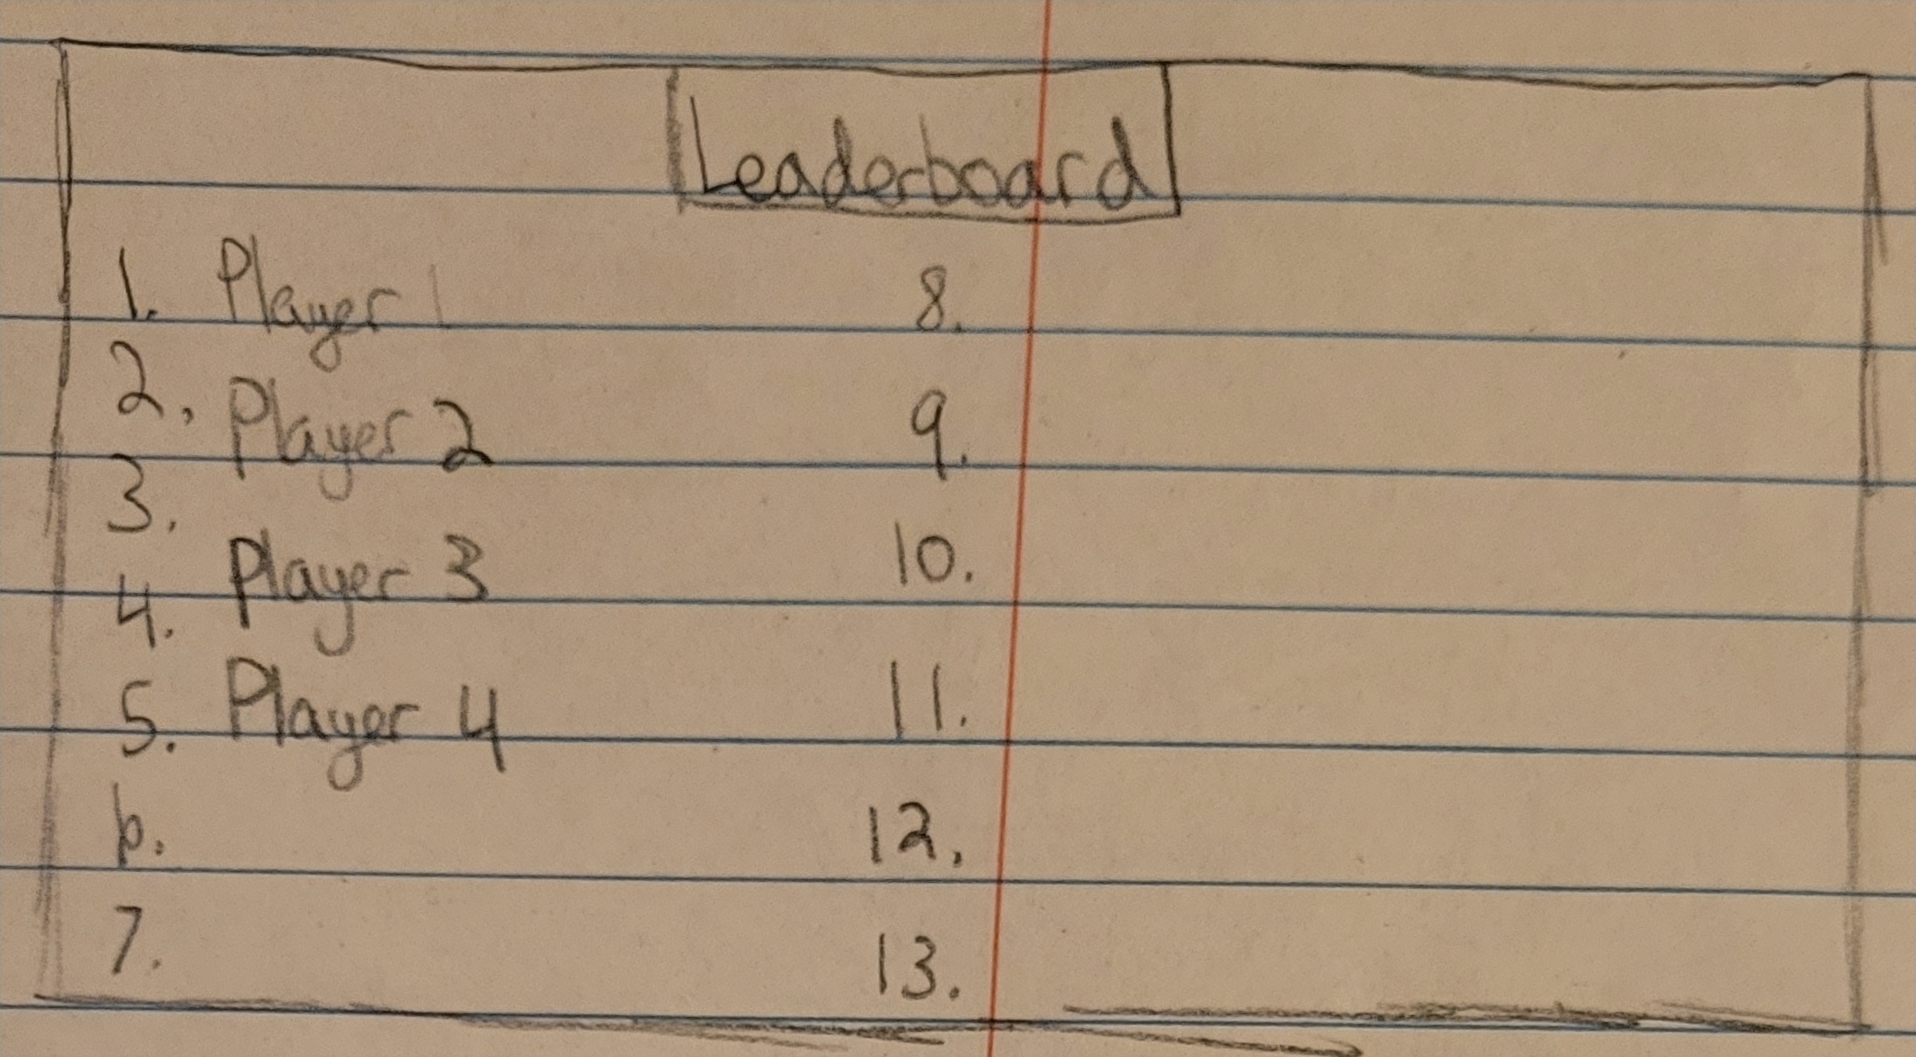 Leaderboard
1. Player 1
2. Player 2
3.
Player 3
4.
5. Player 4
6.
7.
8.
9.
10.
11.
12.
13.